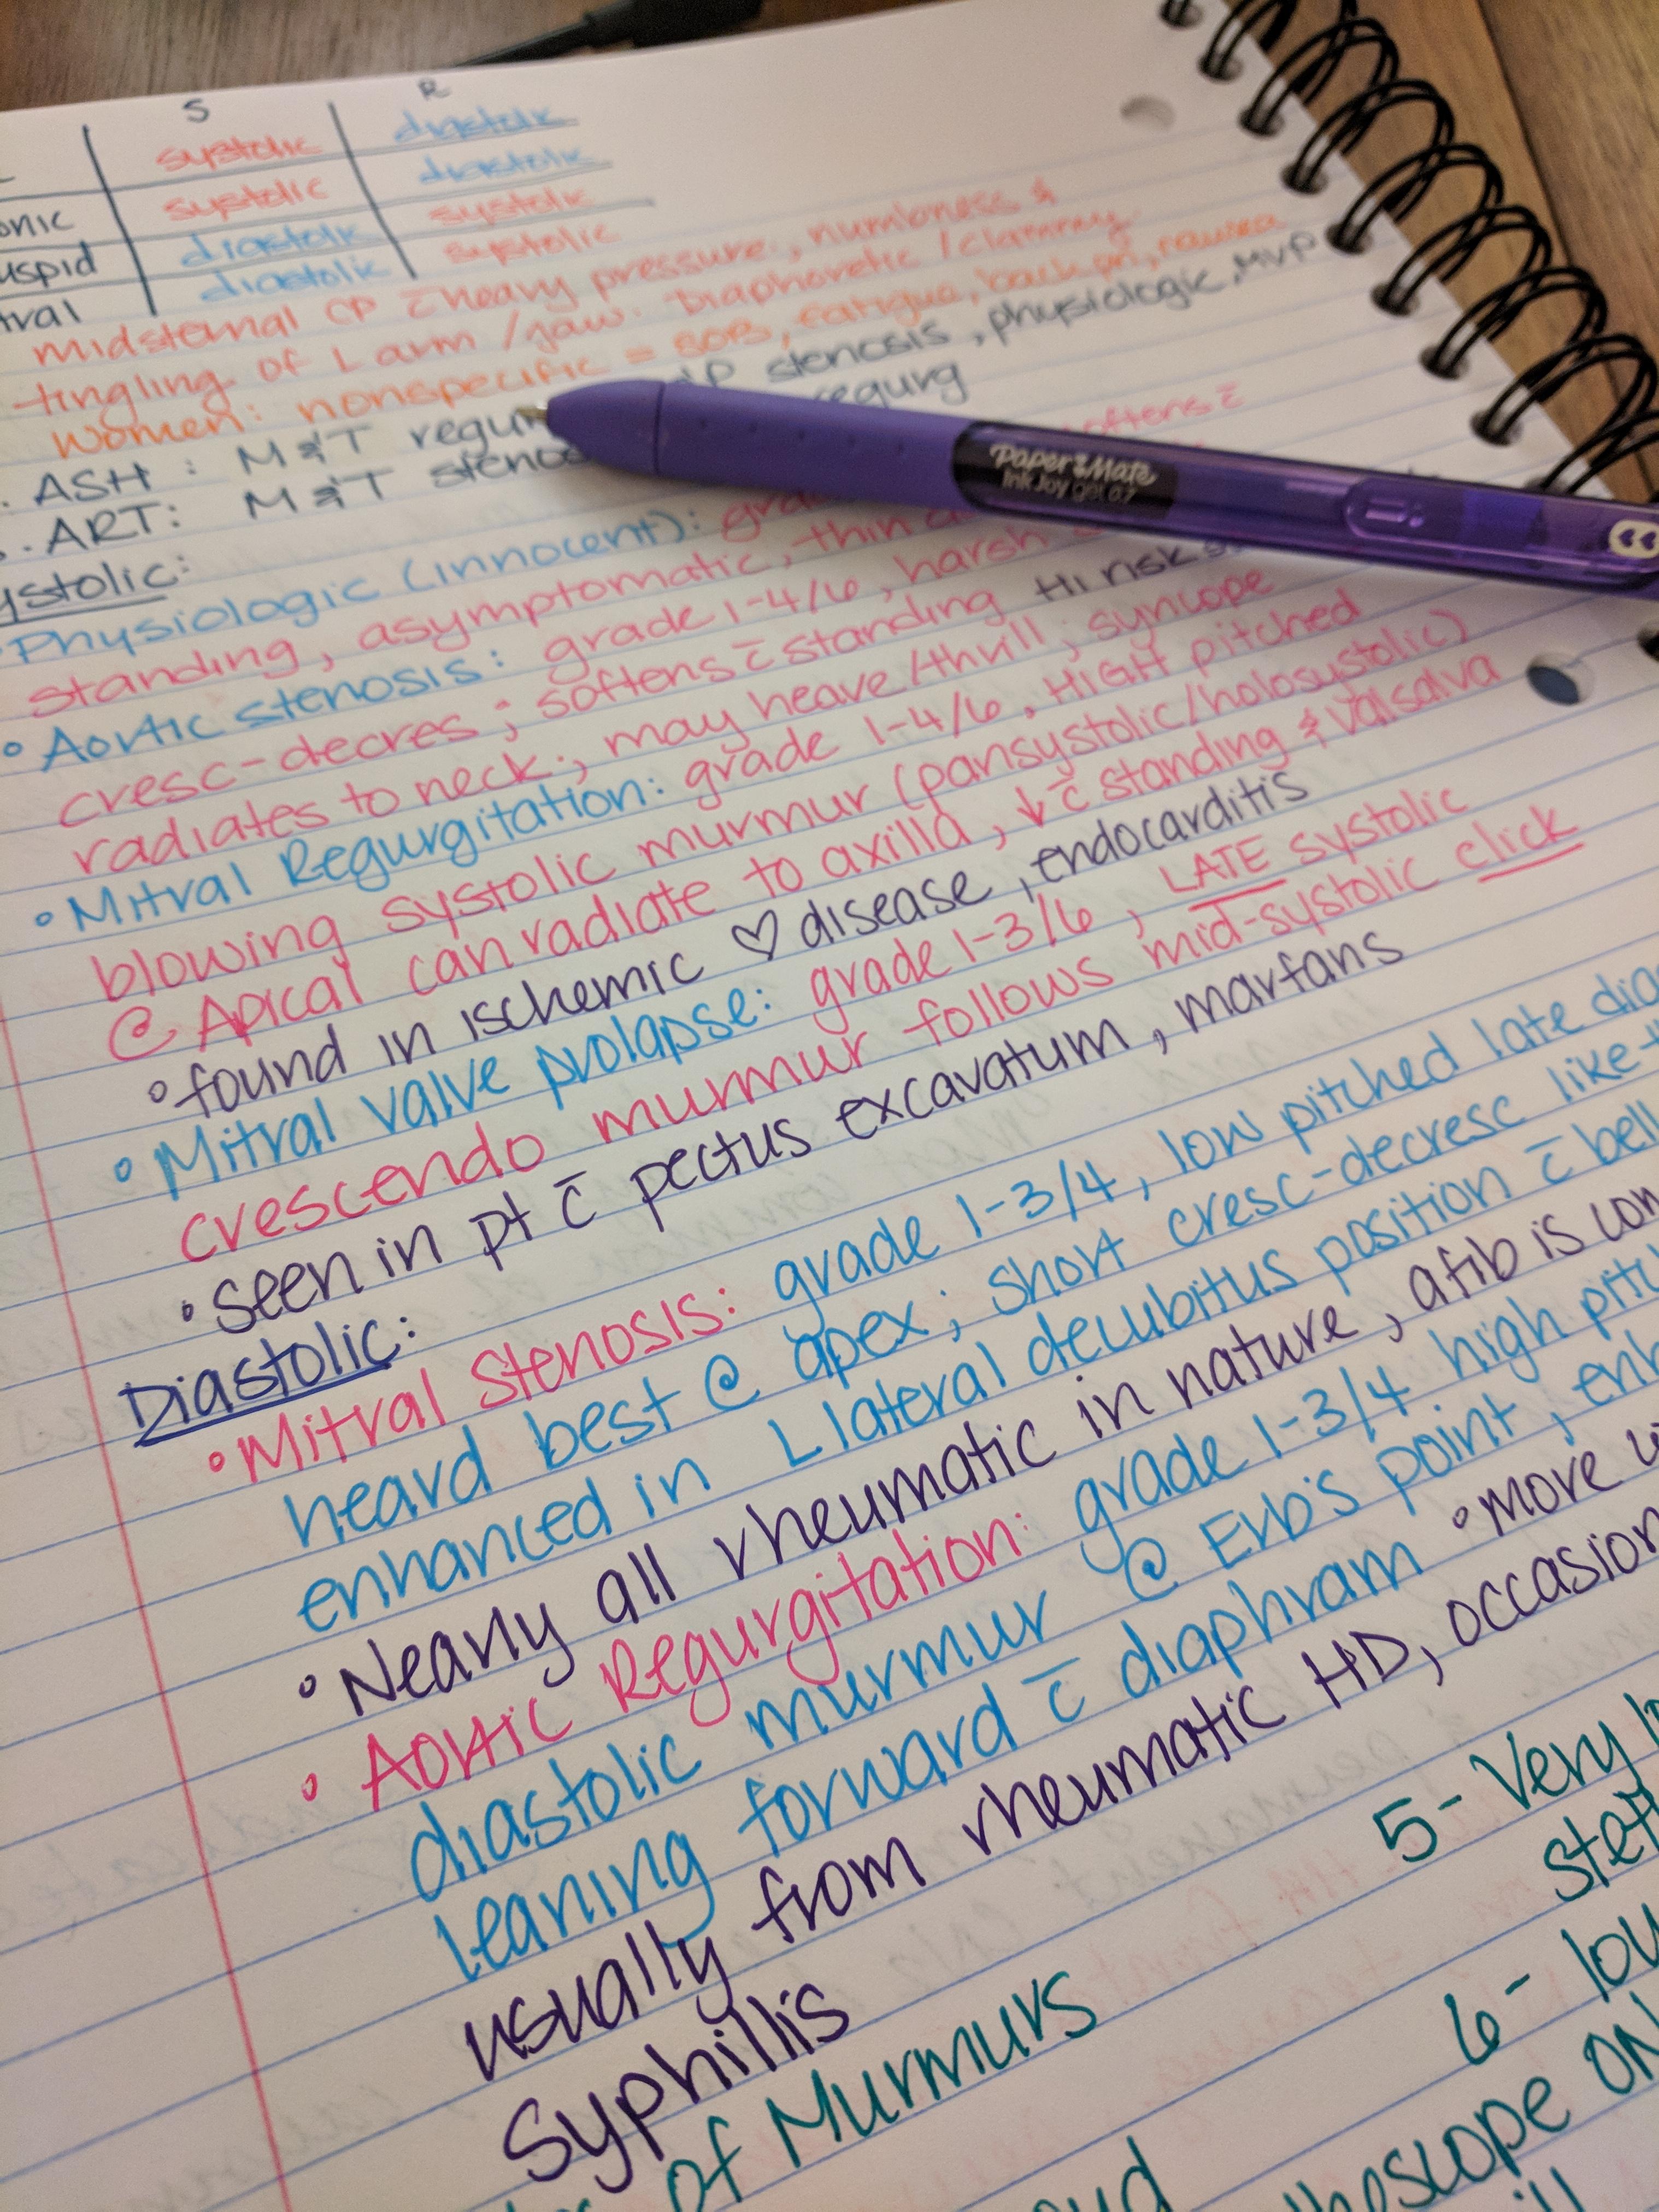 S R
systolic diastolic
onic systolic diastolic
uspid diastolic systolic
tral diastolic systolic
midsternal CP c̄ heavy pressure, numbness &
tingling of L arm / jaw. Diaphoretic / clammy
Women: nonspecific = SOB, fatigue, back pn, nausea
ASH: M & T regur stenosis, physiologic, MVP
ART: M & T stenos regurg
ystolic:
Physiologic (innocent): gra softens c̄
standing, asymptomatic, thin
• Aortic stenosis: grade 1-4/6, harsh
cresc-decres; softens c̄ standing Hi risk s
radiates to neck; may heave/thrill; syncope
• Mitral Regurgitation: grade 1-4/6, HIGH pitched
blowing systolic murmur (pansystolic/holosystolic)
@ Apical can radiate to axilla, ↓ c̄ standing & valsalva
• found in ischemic ♡ disease, endocarditis
• Mitral valve prolapse: grade 1-3/6, LATE systolic
crescendo murmur follows mid-systolic click
• seen in pt c̄ pectus excavatum, marfans
Diastolic:
• Mitral Stenosis: grade 1-3/4, low pitched late dia
heard best @ apex; short cresc-decresc like
enhanced in L lateral decubitus position c̄ bell
• Nearly all rheumatic in nature, afib is com
• Aortic Regurgitation: grade 1-3/4 high pitc
diastolic murmur @ Erb's point, enh
leaning forward c̄ diaphram • more
usually from rheumatic HD, occasion
syphillis
of Murmurs
5- Very
stet
6- lou
thoscope on
Paper Mate
InkJoy gel 0.7